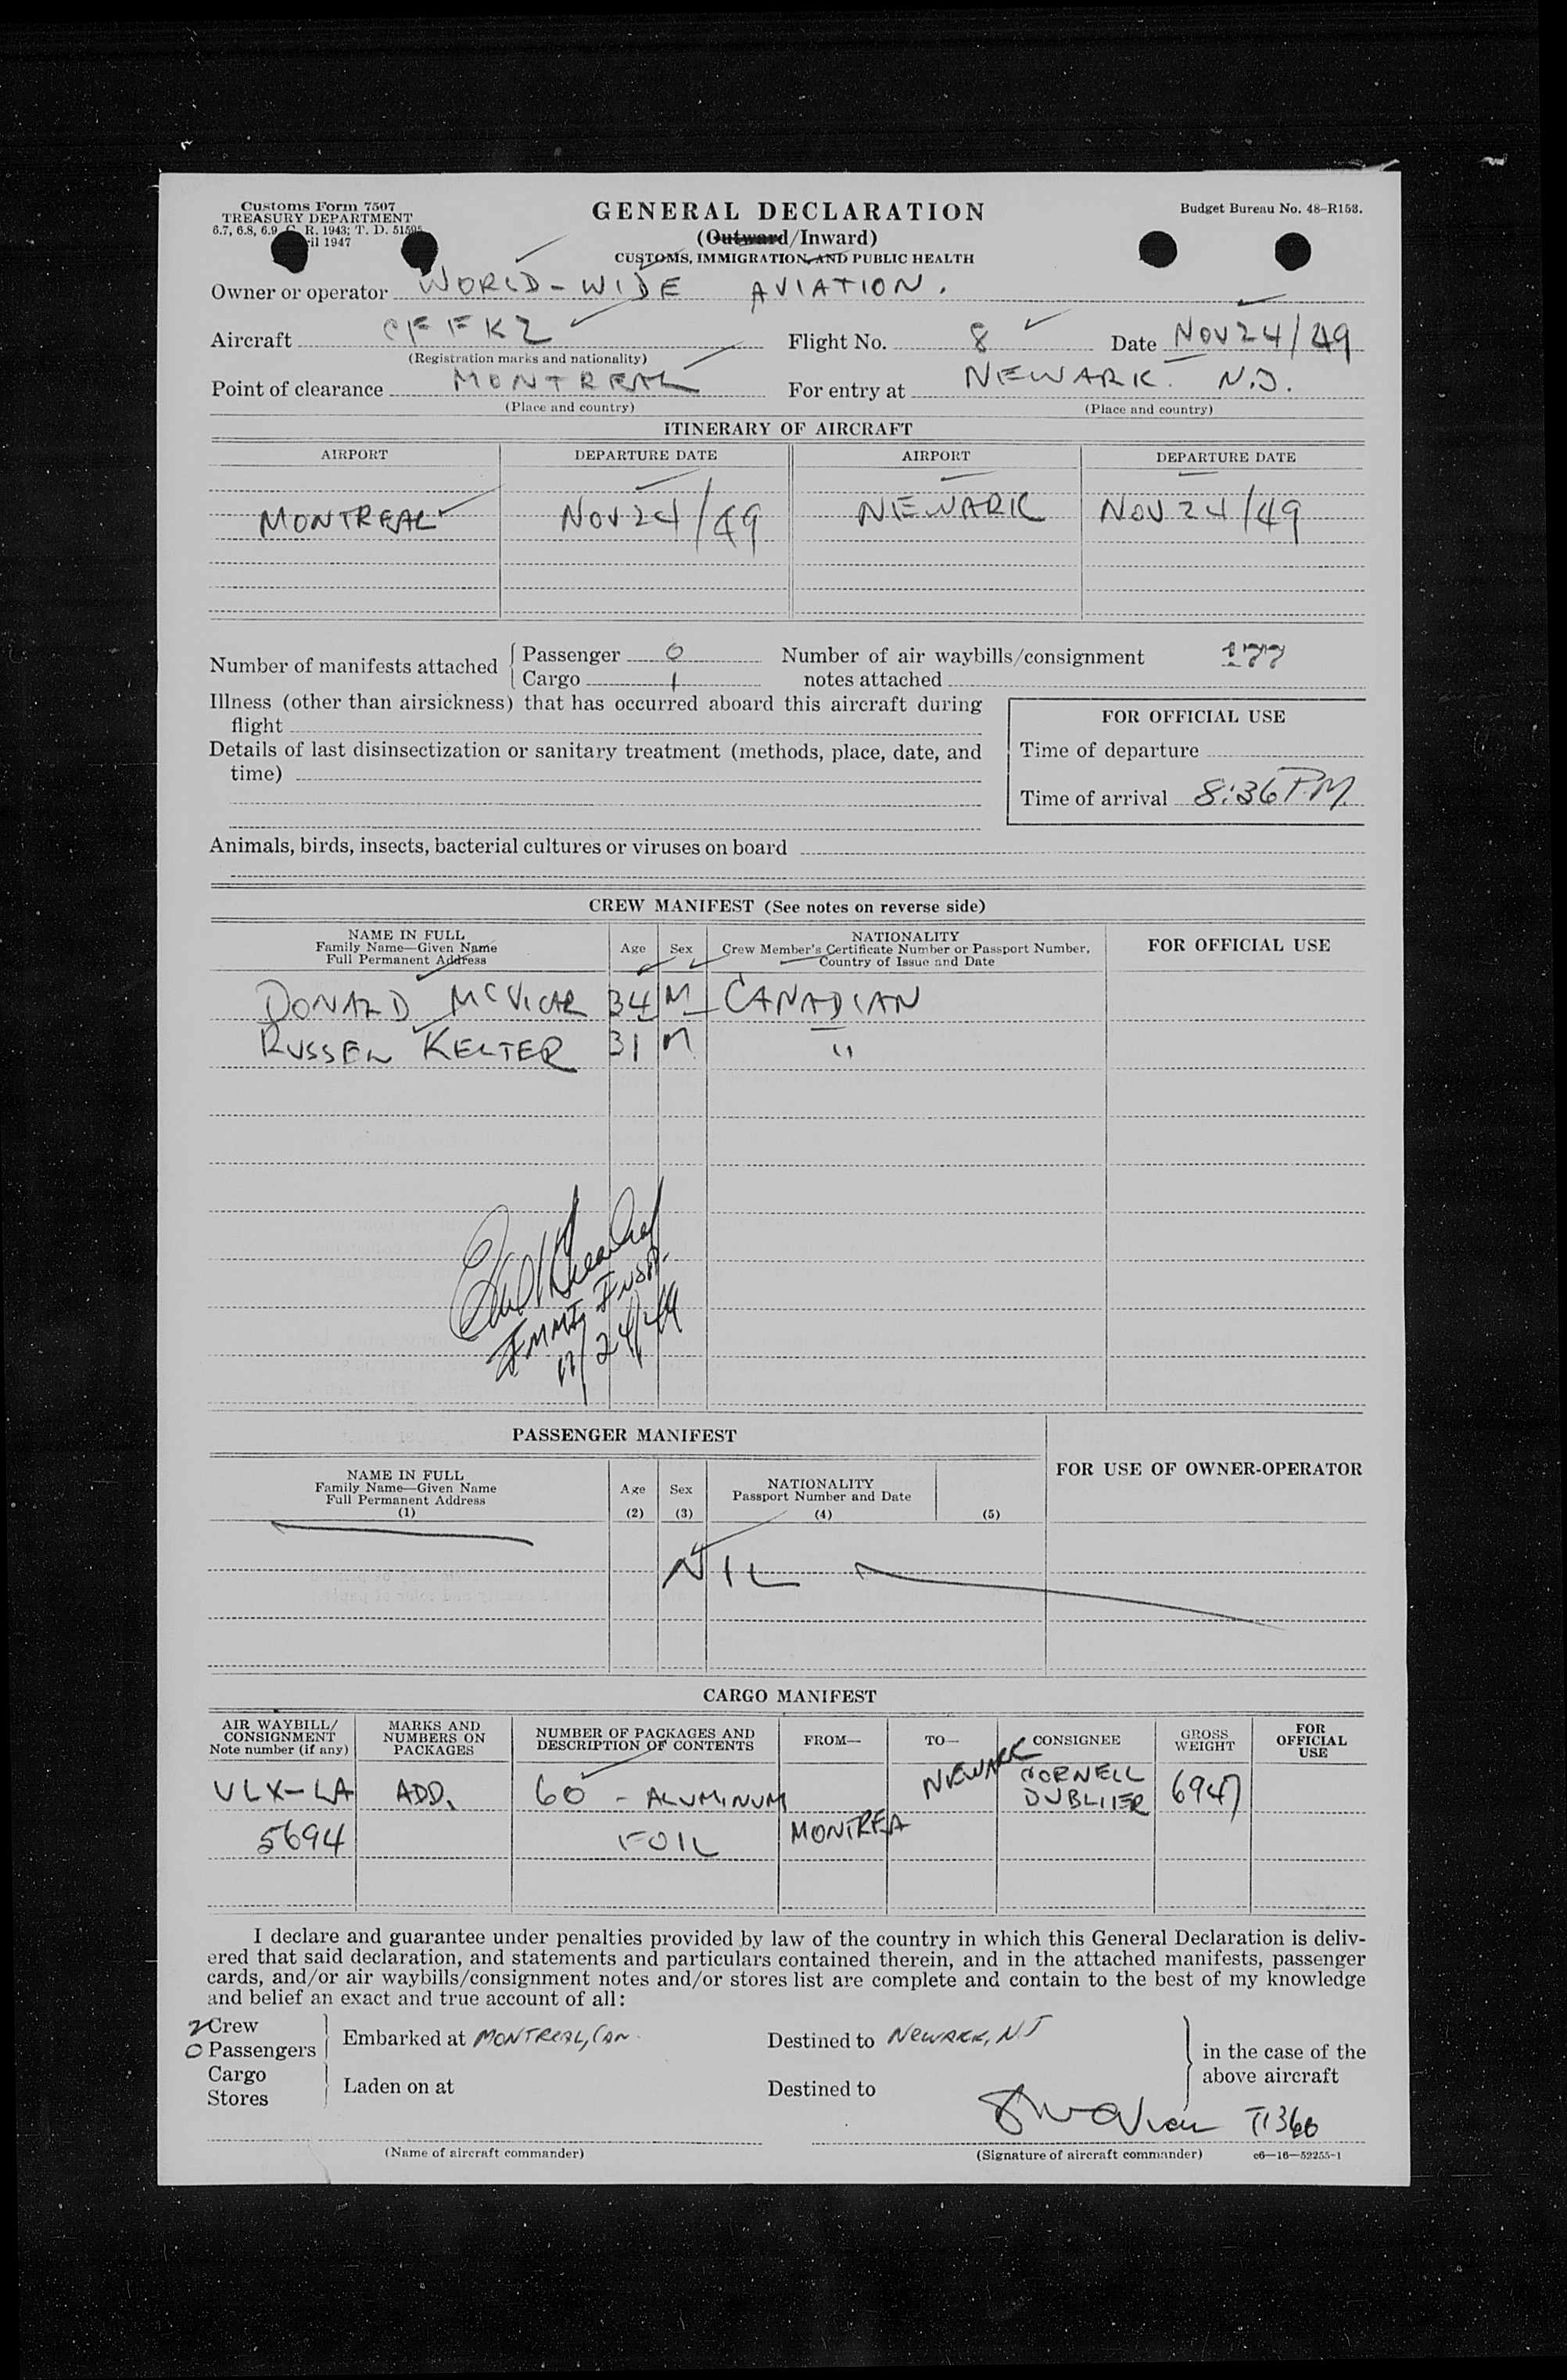 Customs Form 7507
TREASURY DEPARTMENT
6.7, 6.8, 6.9, C. R. 1943; T. D. 51595
1947
GENERAL DECLARATION
(Outward/Inward)
CUSTOMS, IMMIGRATION, AND PUBLIC HEALTH
Budget Bureau No. 48-R153.
Owner or operator WORLD-WIDE AVIATION.
Aircraft CFFKZ Flight No. 8 Date NOV 24/49
(Registration marks and nationality)
Point of clearance MONTREAL For entry at NEWARK. N.J.
(Place and country) (Place and country)
ITINERARY OF AIRCRAFT
AIRPORT DEPARTURE DATE AIRPORT DEPARTURE DATE
MONTREAL NOV 24/49 NEWARK NOV 24/49
Number of manifests attached
Passenger 0
Cargo 1
Number of air waybills/consignment
notes attached 177
Illness (other than airsickness) that has occurred aboard this aircraft during
flight
Details of last disinsectization or sanitary treatment (methods, place, date, and
time)
FOR OFFICIAL USE
Time of departure
Time of arrival 8:36 P.M.
Animals, birds, insects, bacterial cultures or viruses on board
CREW MANIFEST (See notes on reverse side)
NAME IN FULL
Family Name—Given Name
Full Permanent Address
Age Sex
NATIONALITY
Crew Member's Certificate Number or Passport Number,
Country of Issue and Date
FOR OFFICIAL USE
DONALD MCVICAR 34 M CANADIAN
RUSSELL KELTER 31 M "
IMMI. INSP.
11/24/49
PASSENGER MANIFEST
NAME IN FULL
Family Name—Given Name
Full Permanent Address
(1)
Age
(2)
Sex
(3)
NATIONALITY
Passport Number and Date
(4)
(5)
FOR USE OF OWNER-OPERATOR
NIL
CARGO MANIFEST
AIR WAYBILL/
CONSIGNMENT
Note number (if any)
MARKS AND
NUMBERS ON
PACKAGES
NUMBER OF PACKAGES AND
DESCRIPTION OF CONTENTS
FROM—
TO—
CONSIGNEE
GROSS
WEIGHT
FOR
OFFICIAL
USE
VLX-LA ADD. 60 - ALUMINUM NEWARK CORNELL DUBLIIER 6947
5694 FOIL MONTREA
I declare and guarantee under penalties provided by law of the country in which this General Declaration is deliv-
ered that said declaration, and statements and particulars contained therein, and in the attached manifests, passenger
cards, and/or air waybills/consignment notes and/or stores list are complete and contain to the best of my knowledge
and belief an exact and true account of all:
2 Crew
0 Passengers
Embarked at MONTREAL, CAN. Destined to NEWARK, NJ
Cargo
Stores
Laden on at Destined to
in the case of the
above aircraft
(Name of aircraft commander) (Signature of aircraft commander) c6—16—52255-1